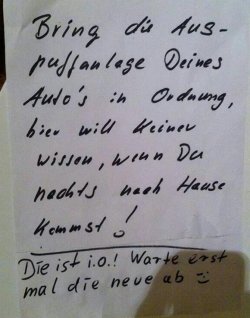 Bring die Aus-
puffanlage Deines
Auto's in Ordnung,
hier will Keiner
wissen, wenn Du
nachts nach Hause
kommst!
Die ist i.o.! Warte erst
mal die neue ab :)